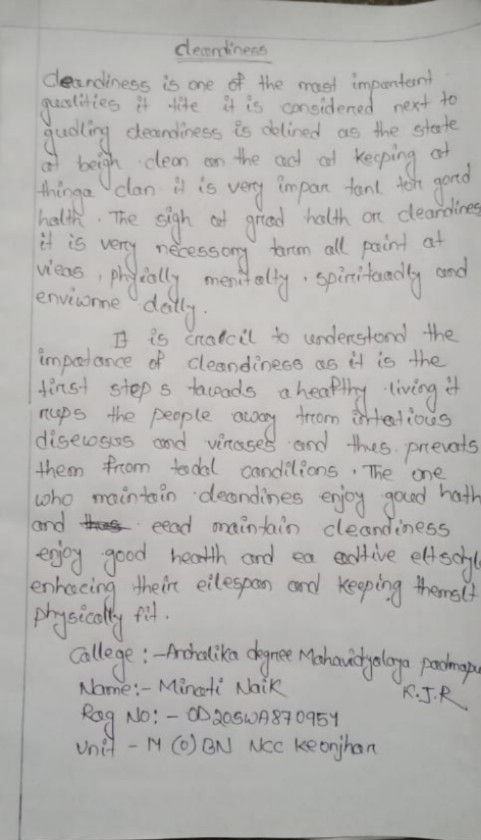 cleandiness
cleandiness is one of the most important
qualities it tite it is considered next to
gudling cleandiness is oblined as the state
at beigh clean on the act of keeping at
thinga clan it is very impan tanl toh gord
halth. The sigh of griod halth on cleandines
it is very necessary tarm all paint at
vieas, phyially menitalty. spiritaadly and
enviwnne dally.
It is cralcil to understand the
impotance of cleandiness as it is the
first step s tawads a heapthy living it
rups the people away from intetious
disewsiss and virases and thus prevats
them from tadal candilions. The one
who maintain deandines enjoy goud hath
and eead maintain cleandiness
enjoy good heatth and ea eadtive eltsdyl
enhacing their eilespan and keeping themslt
physically fit.
College :- Anchalika degree Mahavidyalaya padmapu
Name:- Minati Naik K.J.R
Rag No:- OD20SWA870954
Unit - M (O) BN NCC Keonjhar